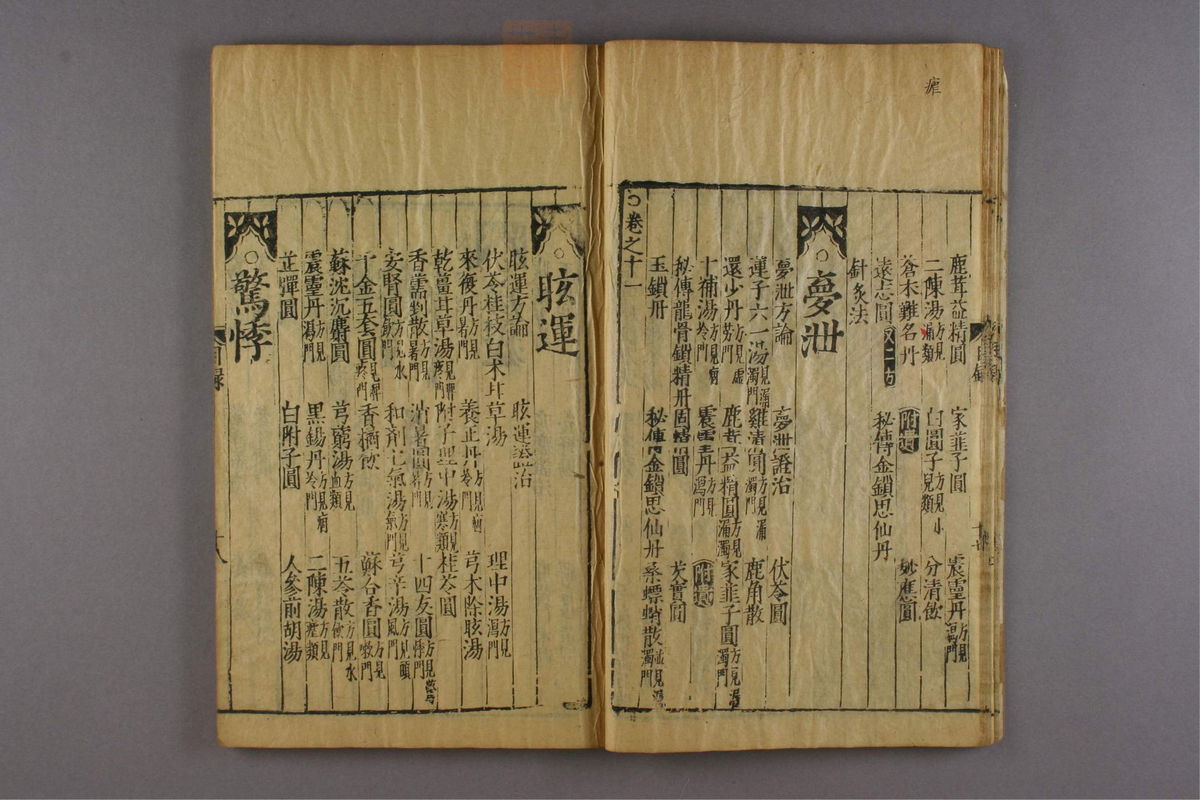 瘧
鹿茸益精圓 家韭子圓 震靈丹方見瀉門
二陳湯方見瘧類 白圓子見類 分清飲
蒼朮難名丹 秘傳金鎖思仙丹 妙應圓
遠志圓又二方 附遺
針灸法
夢泄
夢泄方論 夢泄證治 伏苓圓
蓮子六一湯見漏濁門 雞清圓方見漏濁門 鹿角散
還少丹方見虛勞門 鹿茸益精圓方見漏濁 家韭子圓方見漏濁門
十補湯方見痼冷門 震靈丹方見瀉門 附遺
秘傳龍骨鎖精丹 固精圓 芡實圓
玉鎖丹 秘傳金鎖思仙丹 桑螵蛸散並見漏濁門
卷之十一
眩運
眩運方論 眩運證治 理中湯方見瀉門
伏苓桂枝白朮甘草湯 芎朮除眩湯
來復丹方見暑門 養正丹方見痼冷門
乾薑甘草湯見脾疼門 附子理中湯方見寒類 桂苓圓
香薷對散方見暑門 消暑圓方見暑門 十四友圓方見驚悸門
安腎圓方見水飲門 和劑七氣湯方見氣門 芎辛湯方見頭風門
千金五套圓見脾疼門 香橘飲 蘇合香圓方見門
蘇沈沉麝圓 芎藭湯方見血類 五苓散方見水飲門
震靈丹方見瀉門 黑錫丹方見痼冷門 二陳湯方見瘧類
芷彈圓 白附子圓 人參前胡湯
驚悸
目錄
十八